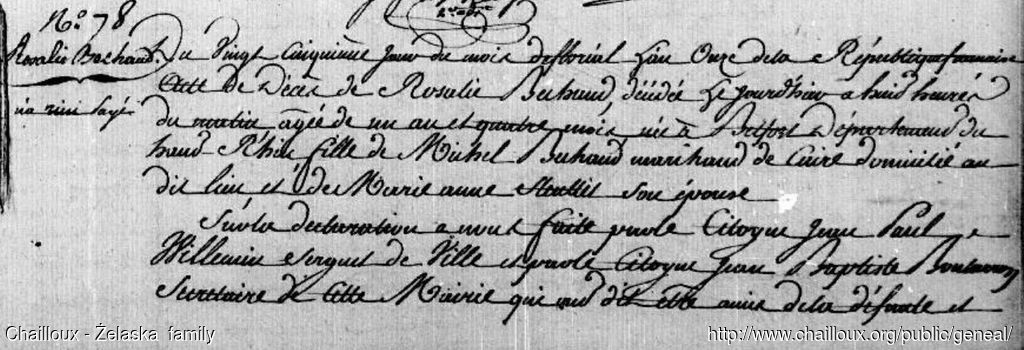 No. 78
Rosalie Bechaud.
na rien payé
Du Vingt Cinquieme Jour du mois de floréal L'an Onze de la République francaise
Acte de Décès de Rosalie Bechaud, décédée Le jourd'hui a huit heures
du matin agée de un an et quatre mois née à Belfort Département du
haut Rhin fille de Michel Bechaud marchand de Cuire domicilié au
dit lieu et de Marie anne son épouse
Sur la declaration a nous faite par le Citoyen Jean Paul
Willemin sergent de Ville et par le Citoyen Jean Baptiste
Secretaire de Cette Mairie qui ont dit etre amis de la défunte et
Chailloux - Želaska family
http://www.chailloux.org/public/geneal/